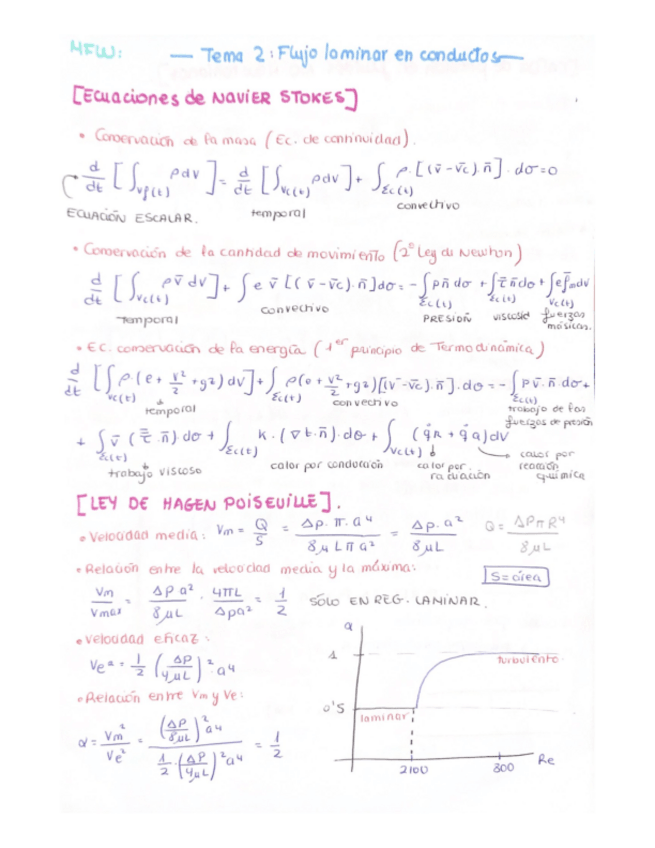 MFW: — Tema 2: Flujo laminar en conductos —
[Ecuaciones de NAVIER STOKES]
• Conservación de la masa (Ec. de continuidad).
d/dt [∫Vf(t) ρdv] = d/dt [∫Vc(t) ρdv] + ∫Σc(t) ρ·[(v̄-v̄c)·n̄]·dσ=0
ECUACIÓN ESCALAR. temporal convectivo
• Conservación de la cantidad de movimiento (2º Ley de Newton)
d/dt [∫Vc(t) ρv̄ dv] + ∫ρ v̄ [(v̄-v̄c)·n̄]dσ = -∫Σc(t) pn̄ dσ + ∫Σc(t) τ̄ n̄dσ + ∫Vc(t) ρf̄m dv
temporal convectivo PRESIÓN viscosid fuerzas
másicas.
• EC. conservación de la energía (1er principio de Termodinámica)
d/dt [∫Vc(t) ρ·(e+ v²/2 +gz) dv] + ∫Σc(t) ρ(e+ v²/2 +gz)[(v̄-v̄c)·n̄]·dσ = -∫Σc(t) pv̄·n̄·dσ +
temporal convectivo trabajo de las
fuerzas de presión
+ ∫Σc(t) v̄ (τ̄·n̄)·dσ + ∫Σc(t) k·(∇t·n̄)·dσ + ∫Vc(t) (q̇R + q̇q)dV
trabajo viscoso calor por conducción calor por radiación calor por reacción química
[LEY DE HAGEN POISEUILLE].
• Velocidad media: Vm = Q/S = Δp·π·a⁴/8μLπa² = Δp·a²/8μL Q = ΔPπR⁴/8μL
• Relación entre la velocidad media y la máxima: S=área
Vm/Vmax = ΔPa²/8μL · 4μL/Δpa² = 1/2 SÓLO EN REG. LAMINAR.
• Velocidad eficaz:
Ve² = 1/2 (ΔP/4μL)²·a⁴
• Relación entre Vm y Ve:
α = Vm²/Ve² = (ΔP/8μL)² a⁴ / 1/2·(ΔP/4μL)² a⁴ = 1/2
α
1 turbulento
0'5 laminar
2100 800 Re